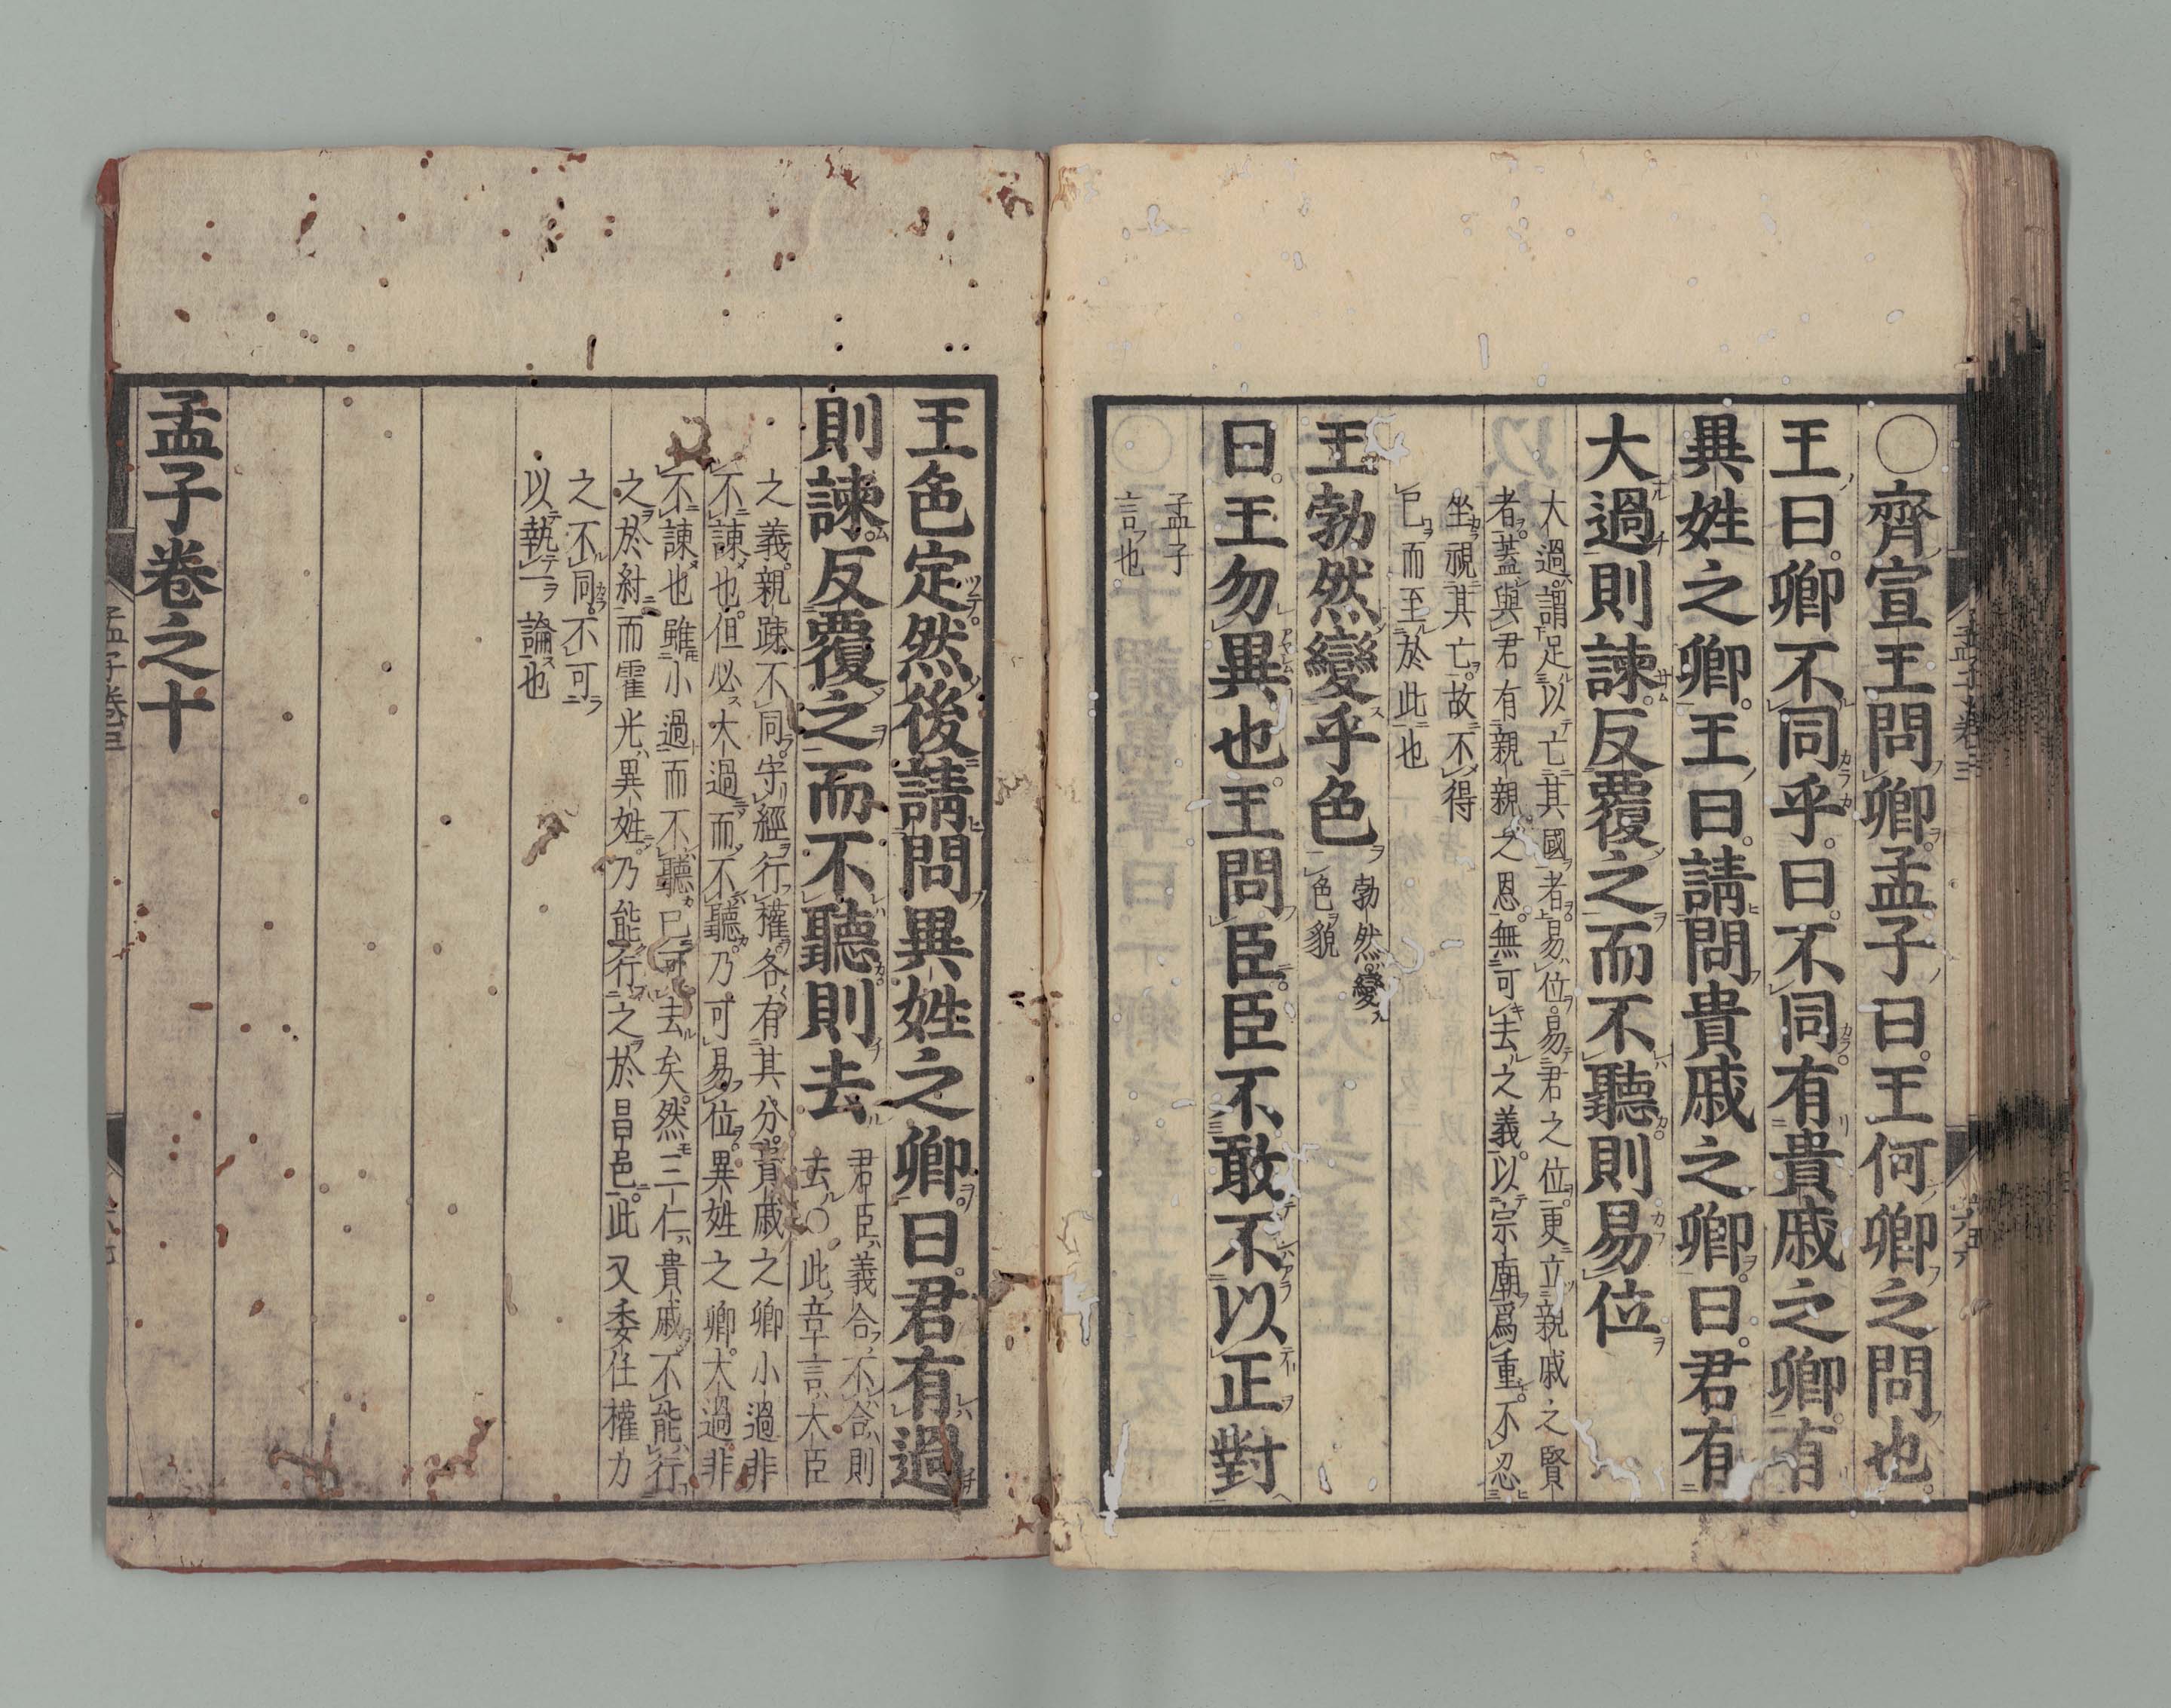 ○齊宣王問卿孟子曰。王何卿之問也。
王曰。卿不同乎。曰。不同。有貴戚之卿。有
異姓之卿。王曰。請問貴戚之卿。曰。君有
大過則諫。反覆之而不聽。則易位
大過。謂足以亡其國者。易位。易君之位。更立親戚之賢
者。蓋與君有親親之恩。無可去之義。以宗廟爲重。不忍
坐視其亡。故不得
已而至於此也
王勃然變乎色
勃然。變
色貌
曰。王勿異也。王問臣。臣不敢不以正對
孟子
言也
王色定。然後請問異姓之卿。曰。君有過
則諫。反覆之而不聽。則去
君臣義合。不合則
去○此章言大臣
之義。親疎不同。守經行權。各有其分。貴戚之卿小過非
不諫也。但必大過而不聽。乃可易位。異姓之卿。大過非
不諫也雖小過而不聽。已可去矣。然三仁貴戚不能行
之於紂。而霍光異姓。乃能行之於昌邑。此又委任權力
之不同。不可
以執一論也
孟子卷之十
孟子卷三
六十六
孟子卷三